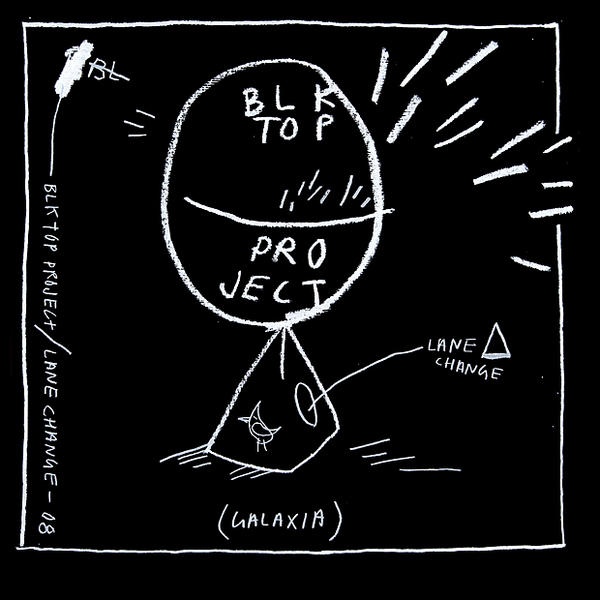 BL
BLK
TOP
PRO
JECT
LANE
CHANGE
(GALAXIA)
BLKTOP PROJECT/LANE CHANGE - 08